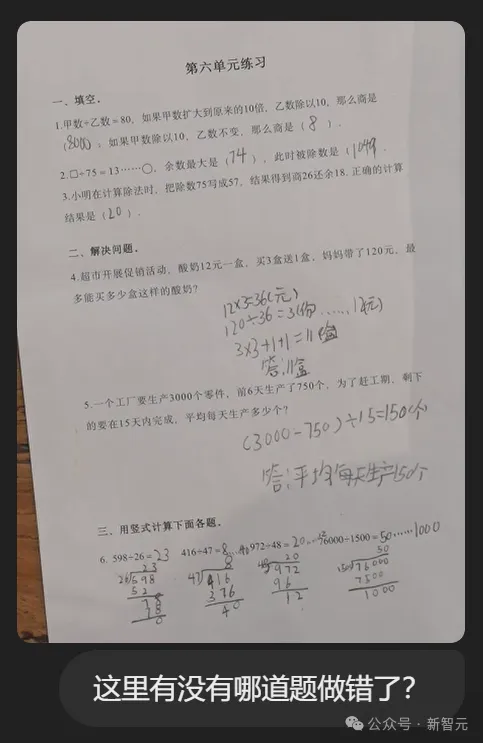 第六单元练习
一、填空.
1.甲数÷乙数=80, 如果甲数扩大到原来的10倍, 乙数除以10, 那么商是
(8000), 如果甲数除以10, 乙数不变, 那么商是( 8 ).
2.□÷75=13……○, 余数最大是( 74 ), 此时被除数是( 1049 .
3.小明在计算除法时, 把除数75写成57, 结果得到商26还余18. 正确的计算
结果是( 20 ).
二、解决问题.
4.超市开展促销活动, 酸奶12元一盒, 买3盒送1盒, 妈妈带了120元, 最
多能买多少盒这样的酸奶?
12×3=36(元)
120÷36=3(份)……12(元)
3×3+1+1=11(盒)
答:11盒
5.一个工厂要生产3000个零件, 前6天生产了750个, 为了赶工期, 剩下
的要在15天内完成, 平均每天生产多少个?
(3000-750)÷15=150个
答:平均每天生产150个
三、用竖式计算下面各题.
6. 598÷26=23 416÷47=8……40 972÷48=20 76000÷1500=50……1000
23 8 20 50
26 598 47 416 48 972 150 76000
52 376 96 7500
78 40 12 1000
78
0
这里有没有哪道题做错了?
公众号·新智元